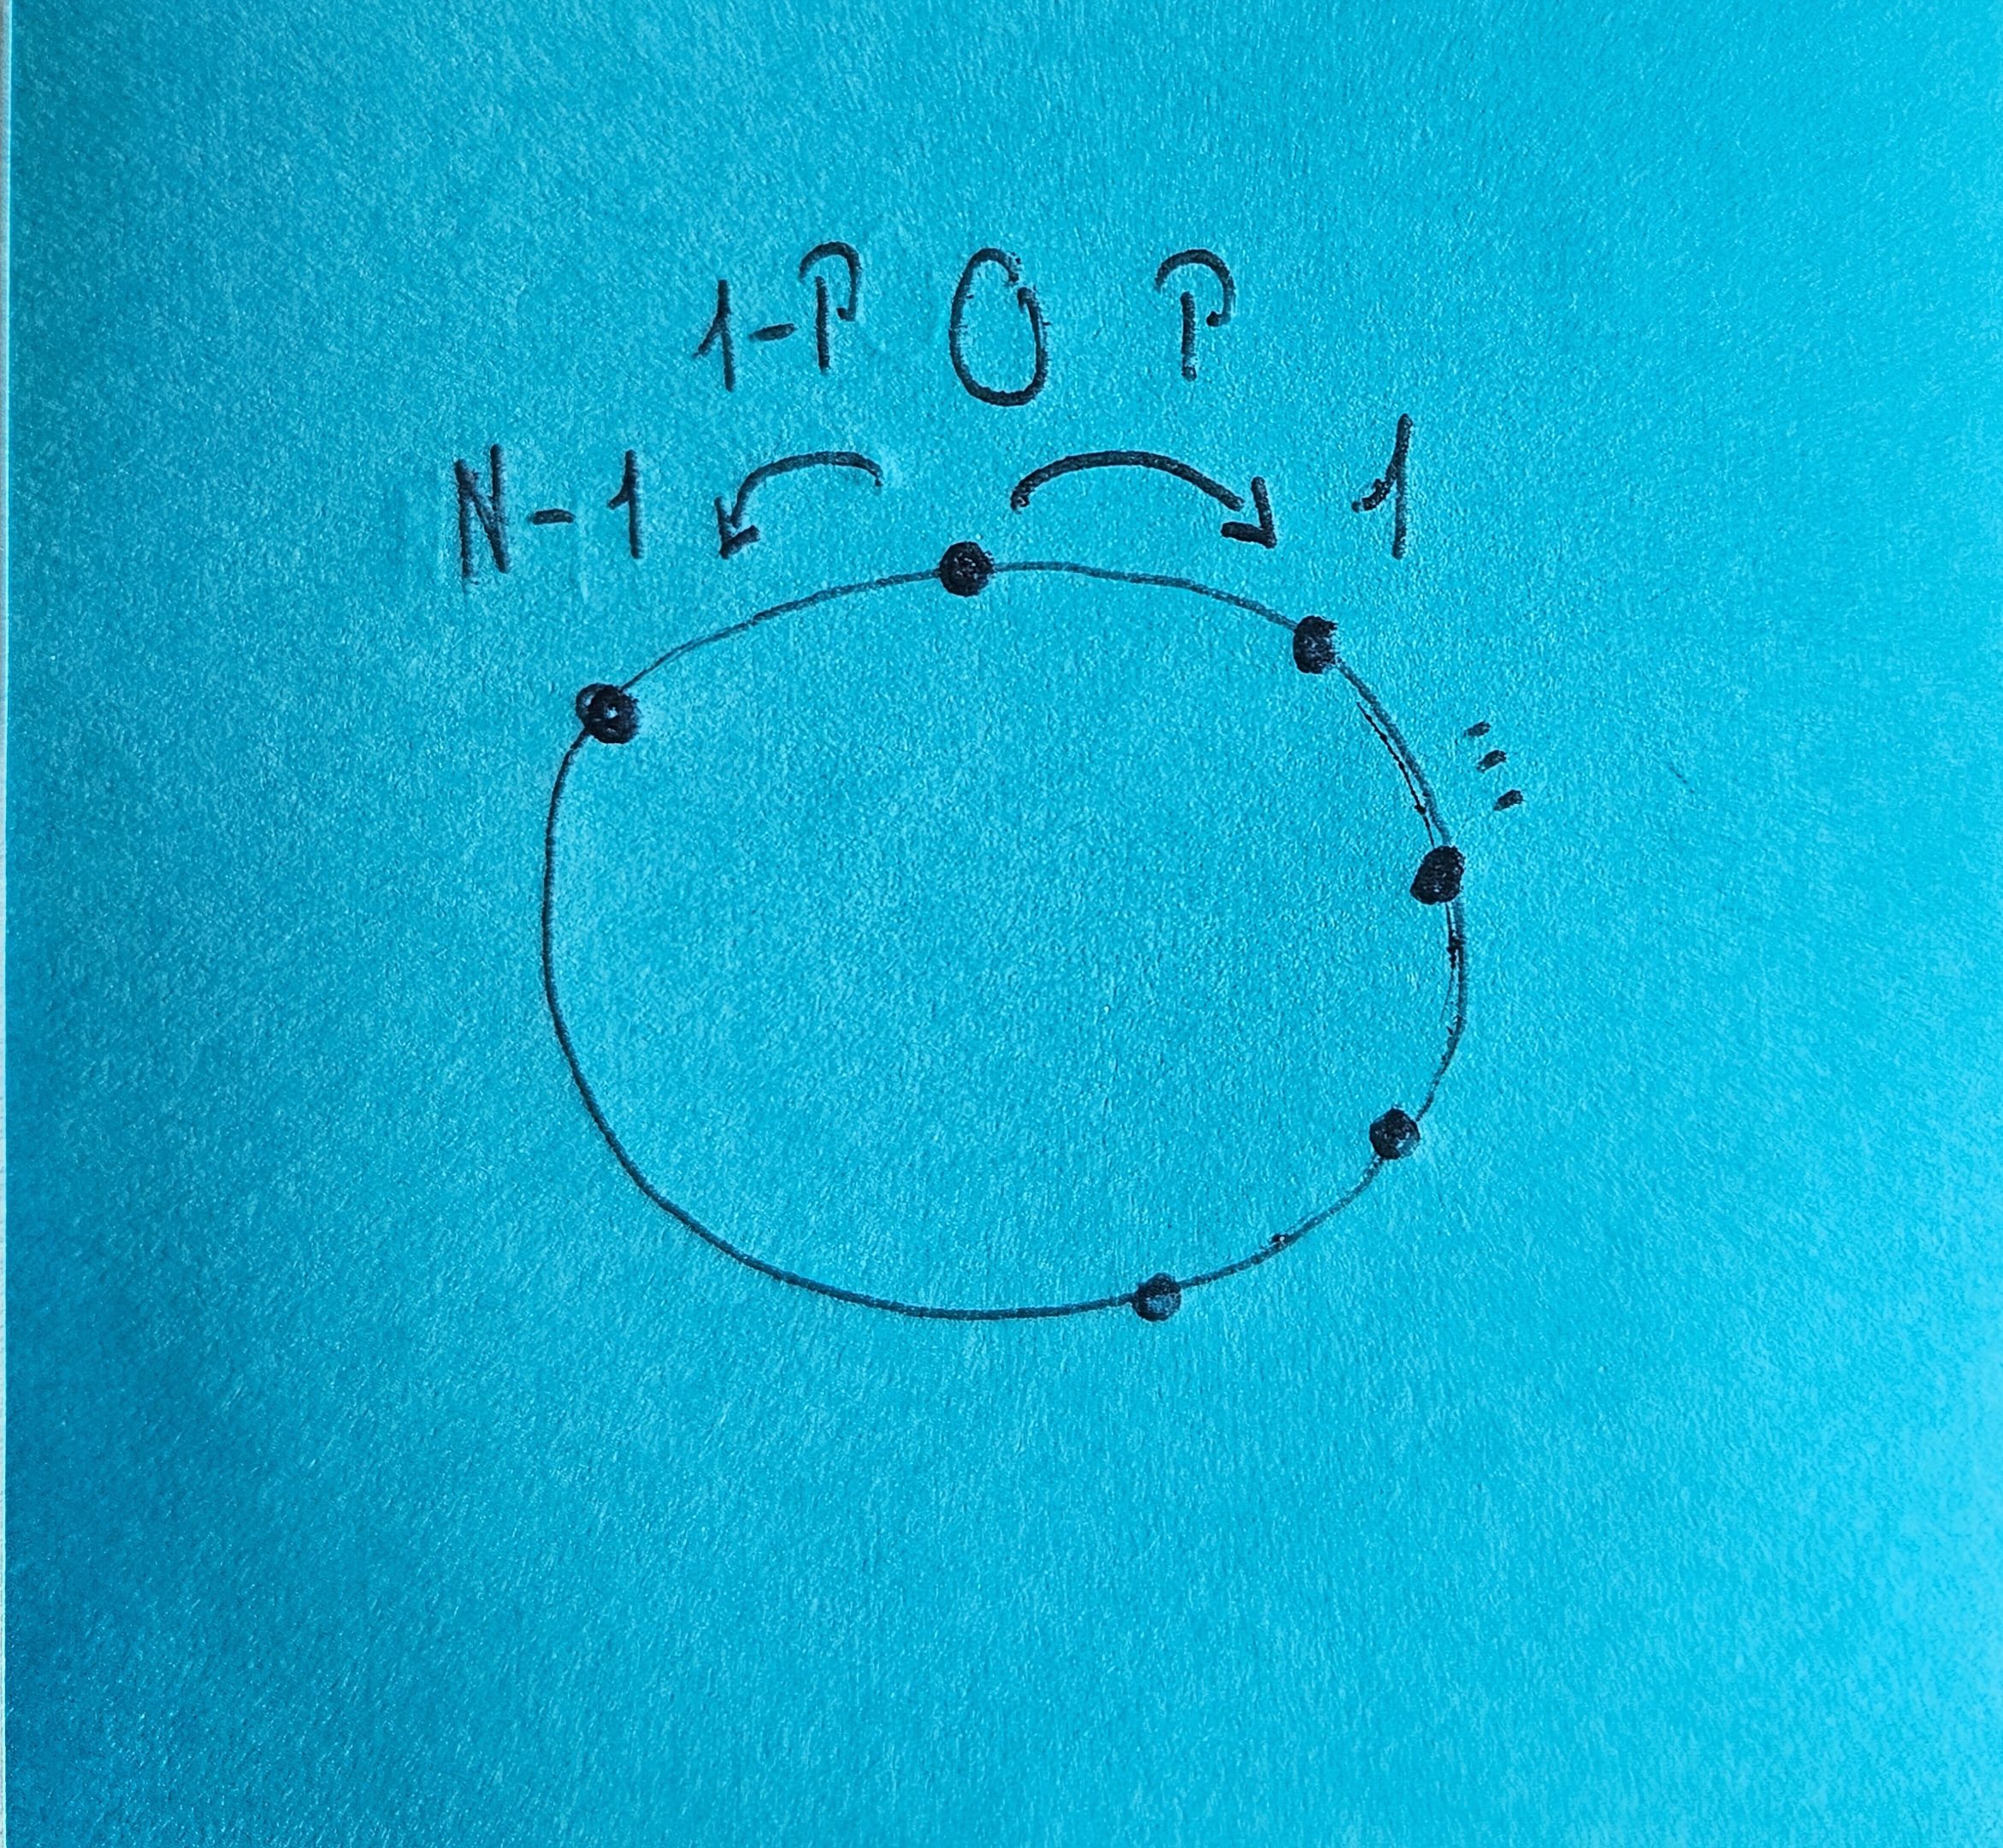 1-P 0 P
N-1 1